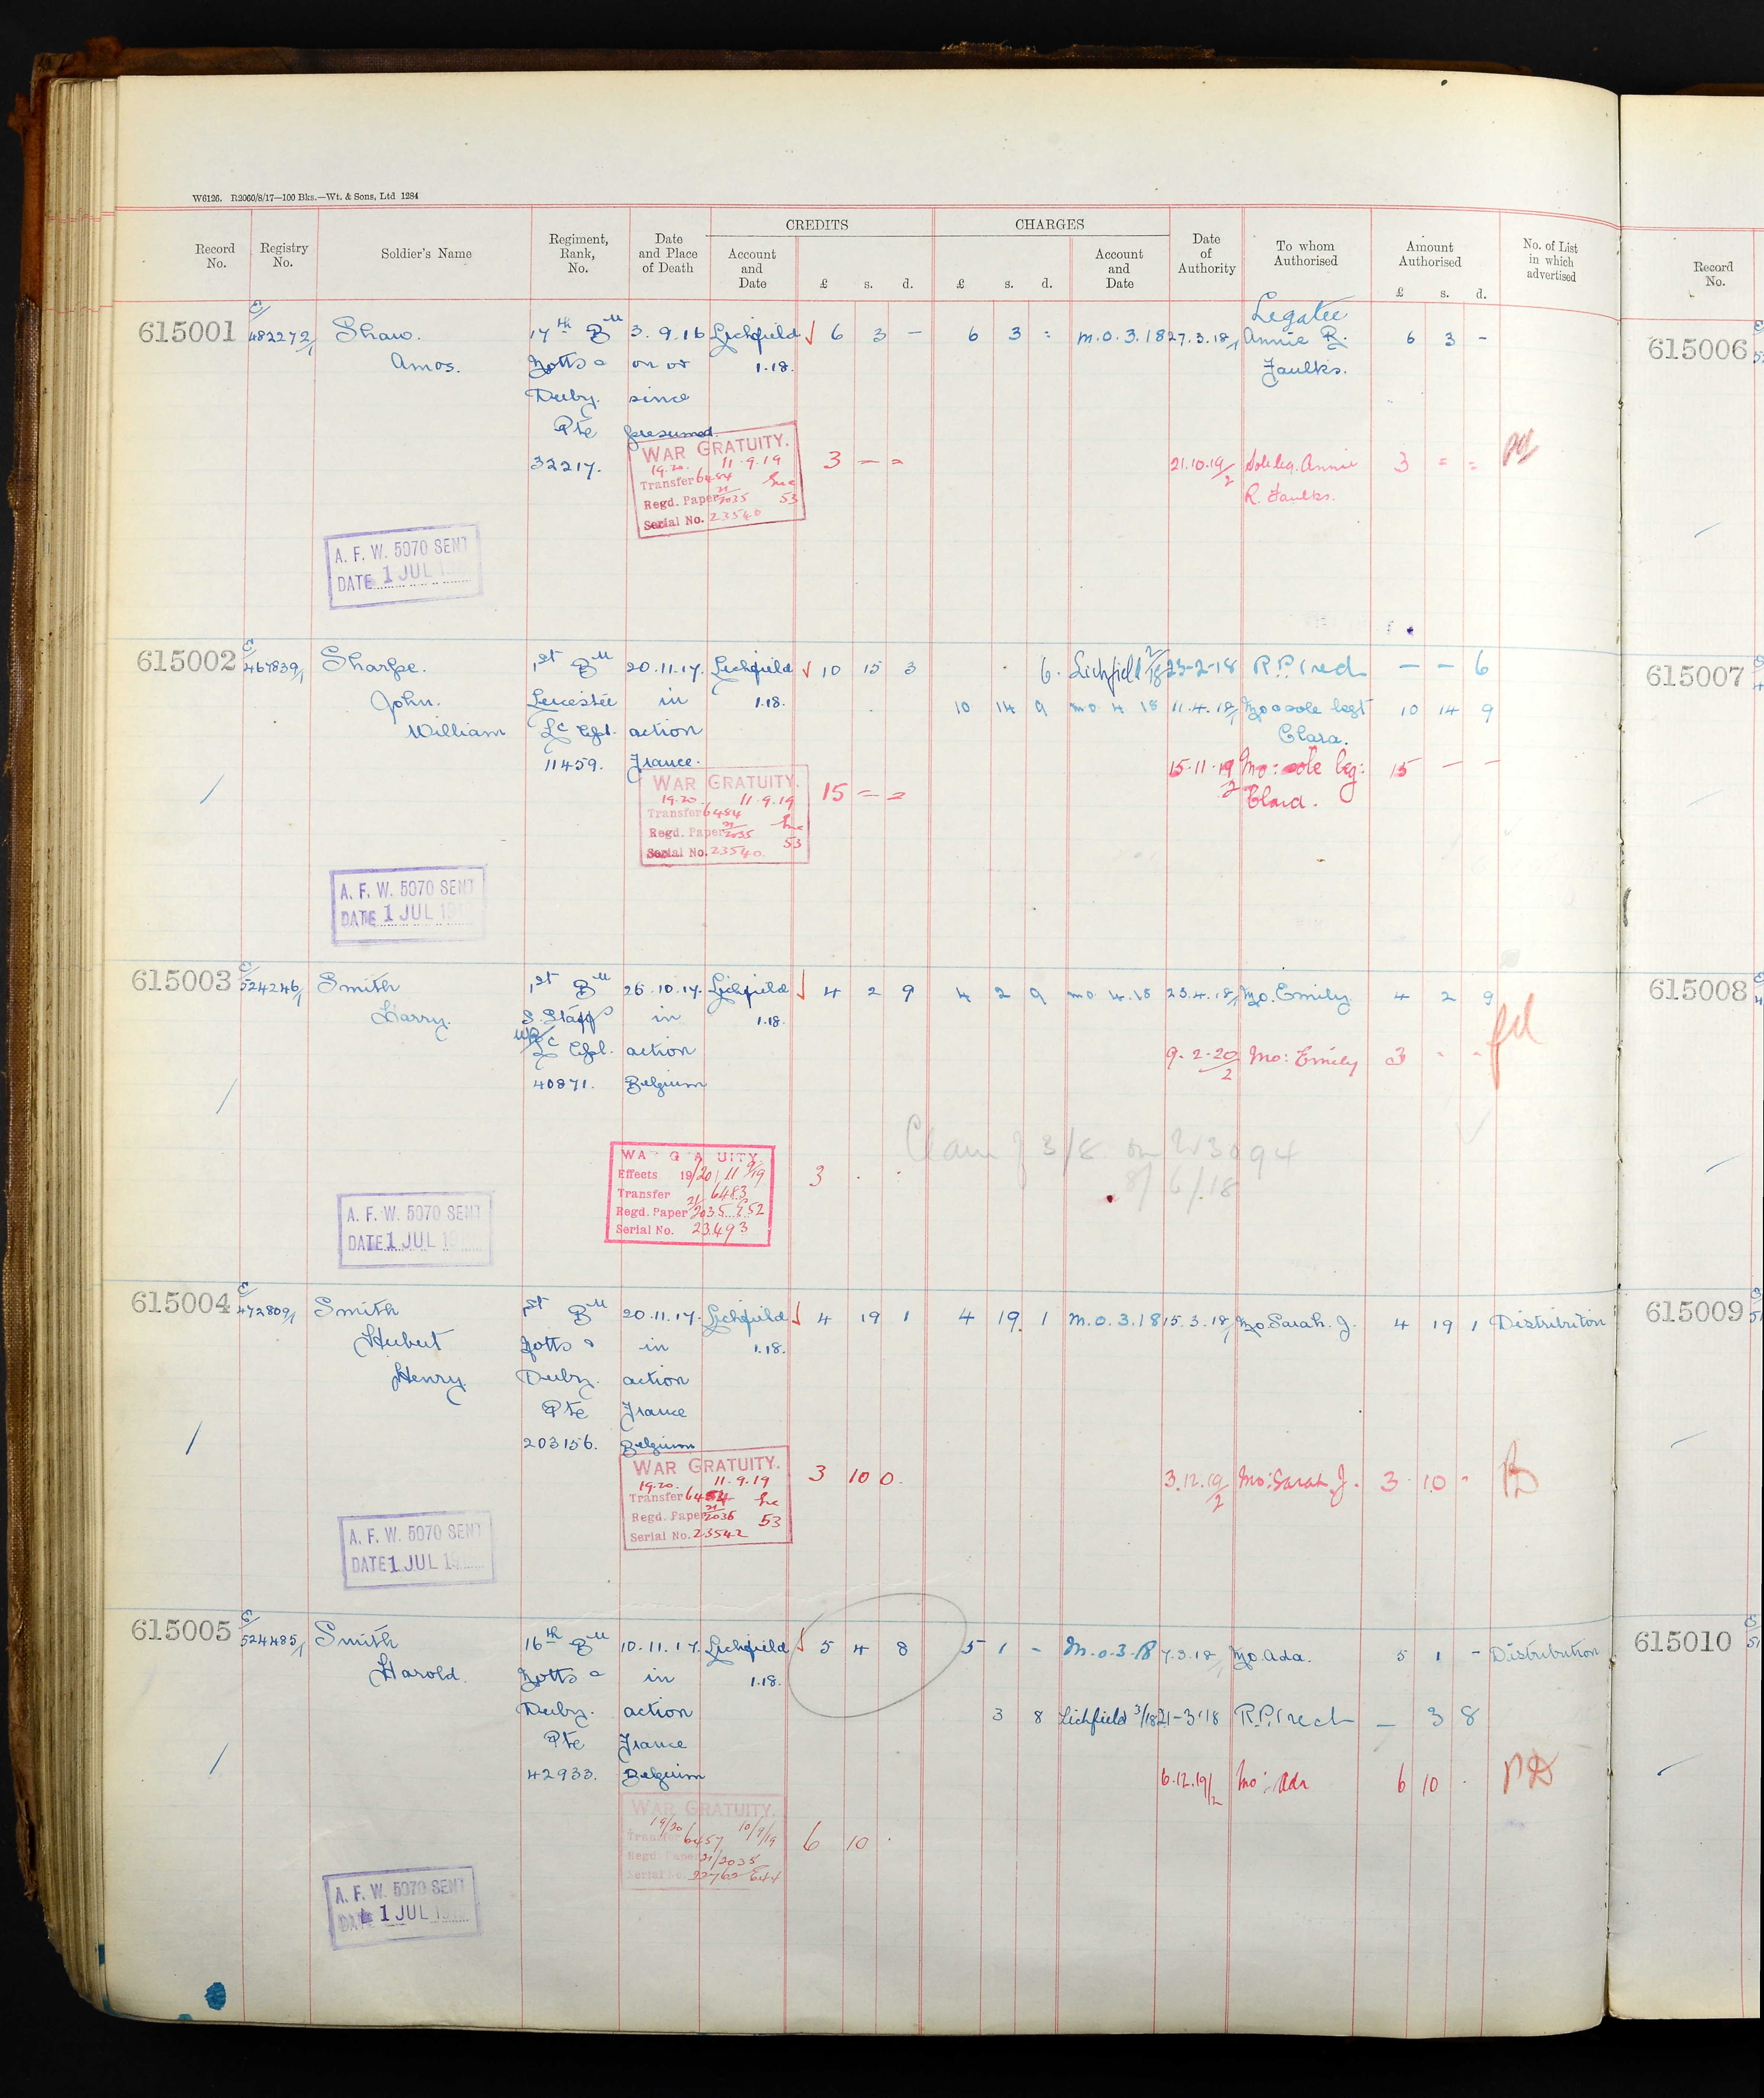 W6126. R2060/8/17—100 Bks.—Wt. & Sons, Ltd 1284
CREDITS CHARGES
Record No. Registry No. Soldier's Name Regiment, Rank, No. Date and Place of Death Account and Date £ s. d. £ s. d. Account and Date Date of Authority To whom Authorised Amount Authorised £ s. d. No. of List in which advertised Record No.
E/ Legatee
615001 482272/1 Shaw. 17th Bn 3.9.16 Lichfield 6 3 – 6 3 : M.O. 3.18 27.3.18/1 Annie R. 6 3 - 615006
Amos. Notts & on or 1.18. Faulks.
Derby. since
Pte presumed.
32217.
WAR GRATUITY.
19.20. 11.9.19
Transfer 6454
Regd. Paper 21/2035 53
Serial No. 23540
3 – = 21.10.19/2 Sole leg. Annie 3 = =
R. Faulks.
A. F. W. 5070 SENT
DATE 1 JUL 19
E/
615002 467839/1 Sharpe. 1st Bn 20.11.17. Lichfield 10 15 3 6. Lichfield 2/18 23-2-18 R.P. 1 red – – 6 615007
John. Leicester in 1.18. 10 14 9 M.O. 4 18 11.4.18/1 Mo & sole legt 10 14 9
William Lc Cpl. action Clara.
11459. France. 15.11.19/2 Mo: sole leg: 15 – –
Clara.
WAR GRATUITY.
19.20. 11.9.19
Transfer 6454
Regd. Paper 21/2035 53
Serial No. 23540.
15 – =
A. F. W. 5070 SENT
DATE 1 JUL 19
E/
615003 524246/1 Smith 1st Bn 26.10.17. Lichfield 4 2 9 4 2 9 M.O. 4.18 23.4.18/1 Mo. Emily. 4 2 9 615008
Harry. S. Staffs in 1.18.
Lc Cpl. action 9.2.20/2 Mo: Emily 3 - -
40871. Belgium
Claim of 3/8 on
8/6/18
WAR GRATUITY.
Effects 19/20 11/9/19
Transfer 6483
Regd. Paper 21/2035 E52
Serial No. 23493
3 . :
A. F. W. 5070 SENT
DATE 1 JUL 19
E/
615004 472809/1 Smith 1st Bn 20.11.17. Lichfield 4 19 1 4 19 1 M.O. 3.18 15.3.18/1 Mo Sarah. J. 4 19 1 Distribution 615009
Herbert Notts & in 1.18.
Henry. Derby. action
Pte France
203156. Belgium
WAR GRATUITY.
19.20. 11.9.19
Transfer
Regd. Paper 21/2036 53
Serial No. 23542
3 10 0. 3.12.19/2 Mo: Sarah J. 3 10 -
A. F. W. 5070 SENT
DATE 1 JUL 19
E/
615005 524485/1 Smith 16th Bn 10.11.17. Lichfield 5 4 8 5 1 – M.O. 3.18 7.3.18/1 Mo. Ada. 5 1 – Distribution 615010
Harold. Notts & in 1.18.
Derby. action 3 8 Lichfield 3/18 21-3-18 R.P. 1 red – 3 8
Pte France
42933. Belgium 6.12.19/2 Mo: Ada 6 10 .
WAR GRATUITY.
19/20 10/9/19
Transfer 6457
Regd. Paper 21/2035
Serial No.
6 10 .
A. F. W. 5070 SENT
DATE 1 JUL 19